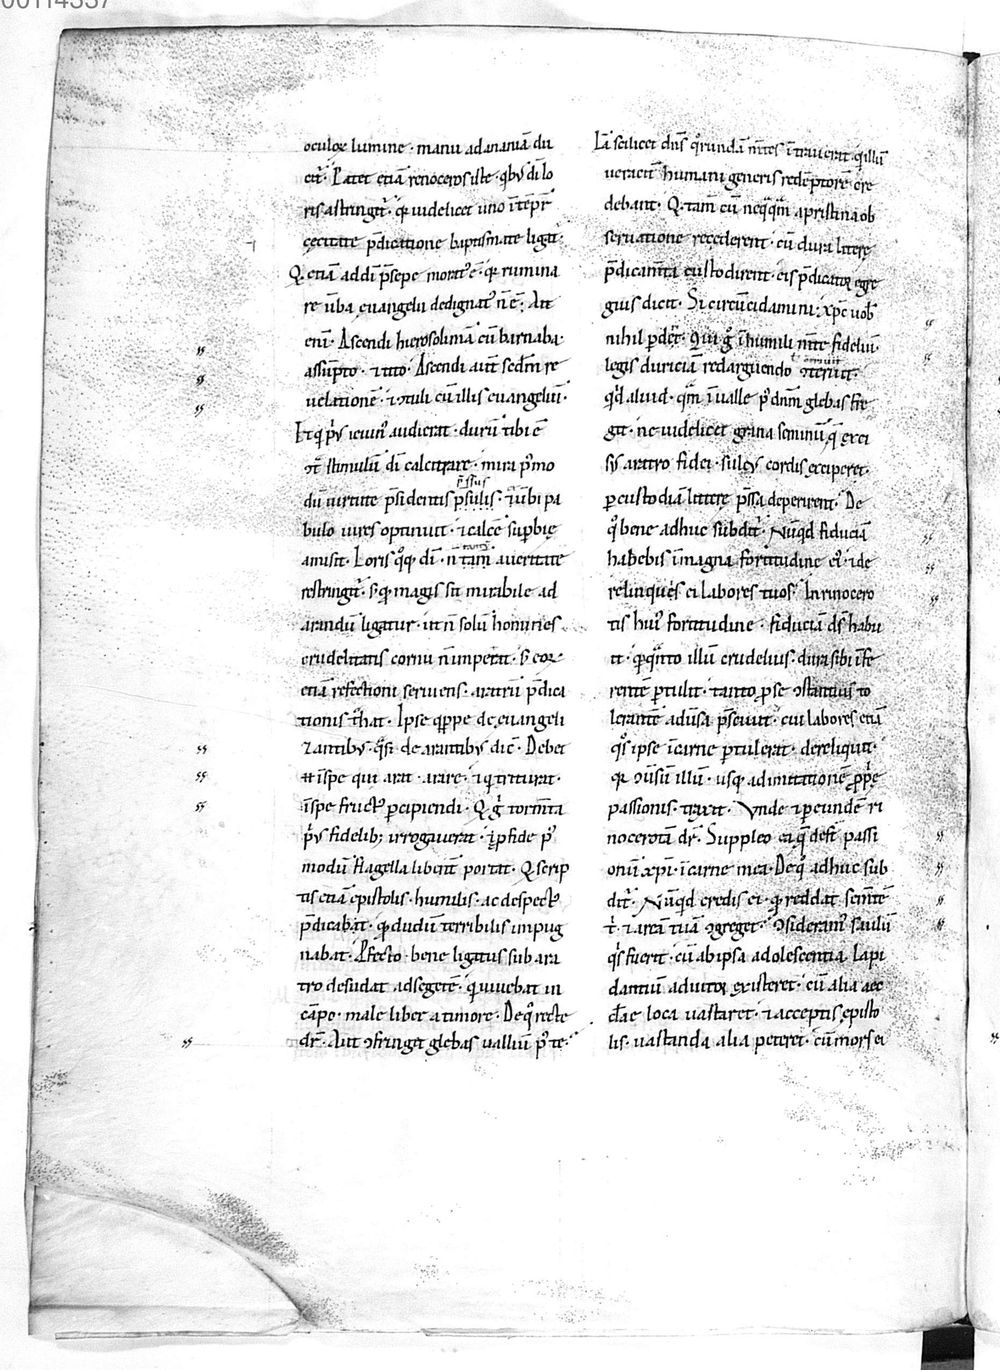 00114337
oculoꝝ lumine · manu ad ananiā du
cit᷑ · Patet etiā renoceros iste · qͥbꝰ di lo
ris astringit᷑ · qꝛ uidelicet uno ī tēpr̄
cęcitate p̄dicatione baptismate ligat᷑ ·
Q͛ etiā ad dī p̄sepe morat᷑ ē · qꝛ rumina
re uba euangelii dedignat᷑ n̄ ē · Ait
eni · Ascendi hierosolimā cū barnaba ·
assūpto · ⁊ tito · Ascendi aūt scdm̄ re
uelationē · ⁊ ꝯtuli cū illis euangeliū ·
Et q p̾ꝰ ieiunꝰ audierat · durū tibi ē
ꝯt̄ stimulū di calcitrare · mira pͥmo
dū uirtute p̄sidentis
bulo uires optinuit · ⁊ calcē supbię
amisit · Loris qͦqꝫ di · n̄ tam a ueritate
restringit᷑ · s; qꝙ magis sit mirabile ad
arandū ligatur · ut n̄ solū homines
crudelitatis cornu n̄ impetat · s; eoꝝ
etiā refectioni seruiens · aratrū p̄dica
tionis t̄hat · Ipse qͥppe de euangeli
zantibꝰ qͣsi de arantibꝰ dic̄ · Debet
ī spe qui arat · arare · ⁊ q triturat ·
ī spe fructꝰ ꝑcipiendi · Q͛ gͦ torm̄ta
p̾ꝰ fidelibꝫ irrogauerat · ⁊ ꝓ fide pͦ
modū flagella libent᷑ portat · Q͛ scrip
tis etiā epistolis · humilis · ac despectꝰ
p̄dicabat · qꝙ dudū terribilis impug
nabat · Pfecto bene ligatus sub ara
tro desudat ad segetē · qͥ uiuebat in
cāpo · male liber a timore · De qͦ recte
dr̄ · Aut ꝯfringet glebas ualliū pͦ te ·
Iā scilicet dn̄s qͦrundā m̄tes ītrauerat · qͥ illū
ueracit᷑ humani generis redēptorē cre
debant · Q͛ tam̄ cū neqͣqͣm a pristina ob
seruatione recederent · cū dura litterę
p̄dicam̄ta custodirent · eis p̄dicatoꝛ egre
gius dicit · Si circūcidamini · xp̄c uob̄
nihil pdēt᷑ · Qui gͦ ī humili m̄te fideliū
legis duriciā redarguendo ꝯteruit ·
qͥd aliud · qͣm ī ualle pͦ dn̄m glebas fre
git · ne uidelicet grana seminū q̄ exci
sꝰ aratro fidei · sulcꝰ cordis exciperet ·
ꝑ custodiā litterę p̄ssa deperirent · De
qͦ bene adhuc subdit᷑ · Nūqͥd fiduciā
habebis ī magna fortitudine eiꝰ · ⁊ de
relinques ei labores tuos · In rinocero
tis huiꝰ fortitudine · fiduciā ds̄ habu
it · qꝙ qͣnto illū crudeliꝰ · dura sibi īfe
rentē ꝑtulit · tanto ꝓ se ꝯstantiꝰ to
lerantē aduersa p̄sciuit · cui labores etiā
qͦs ipse ī carne ꝑtulerat · dereliquit ·
qꝛ ꝯūsū illū · usqꝫ ad imitationē ꝓpͥę
passionis · traxit · Vnde ⁊ ꝑ eundē ri
nocerotā dr̄ · Suppleo ea q̄ deſt̄ passi
onū xpi · ī carne mea · De qͦ adhuc sub
dit᷑ · Nūqͥd credis ei · qꝙ reddat semtē
t᷑ · ⁊ areā tuā ꝯgreget · Ꝯsideramꝰ saulū
qͥs fuerit · cū ab ipsa adolescentia · lapi
dantiū adiutoꝛ existeret · cū alia ęcc
clae loca uastaret · ⁊ acceptis episto
lis · uastanda alia peteret · cū mors ei